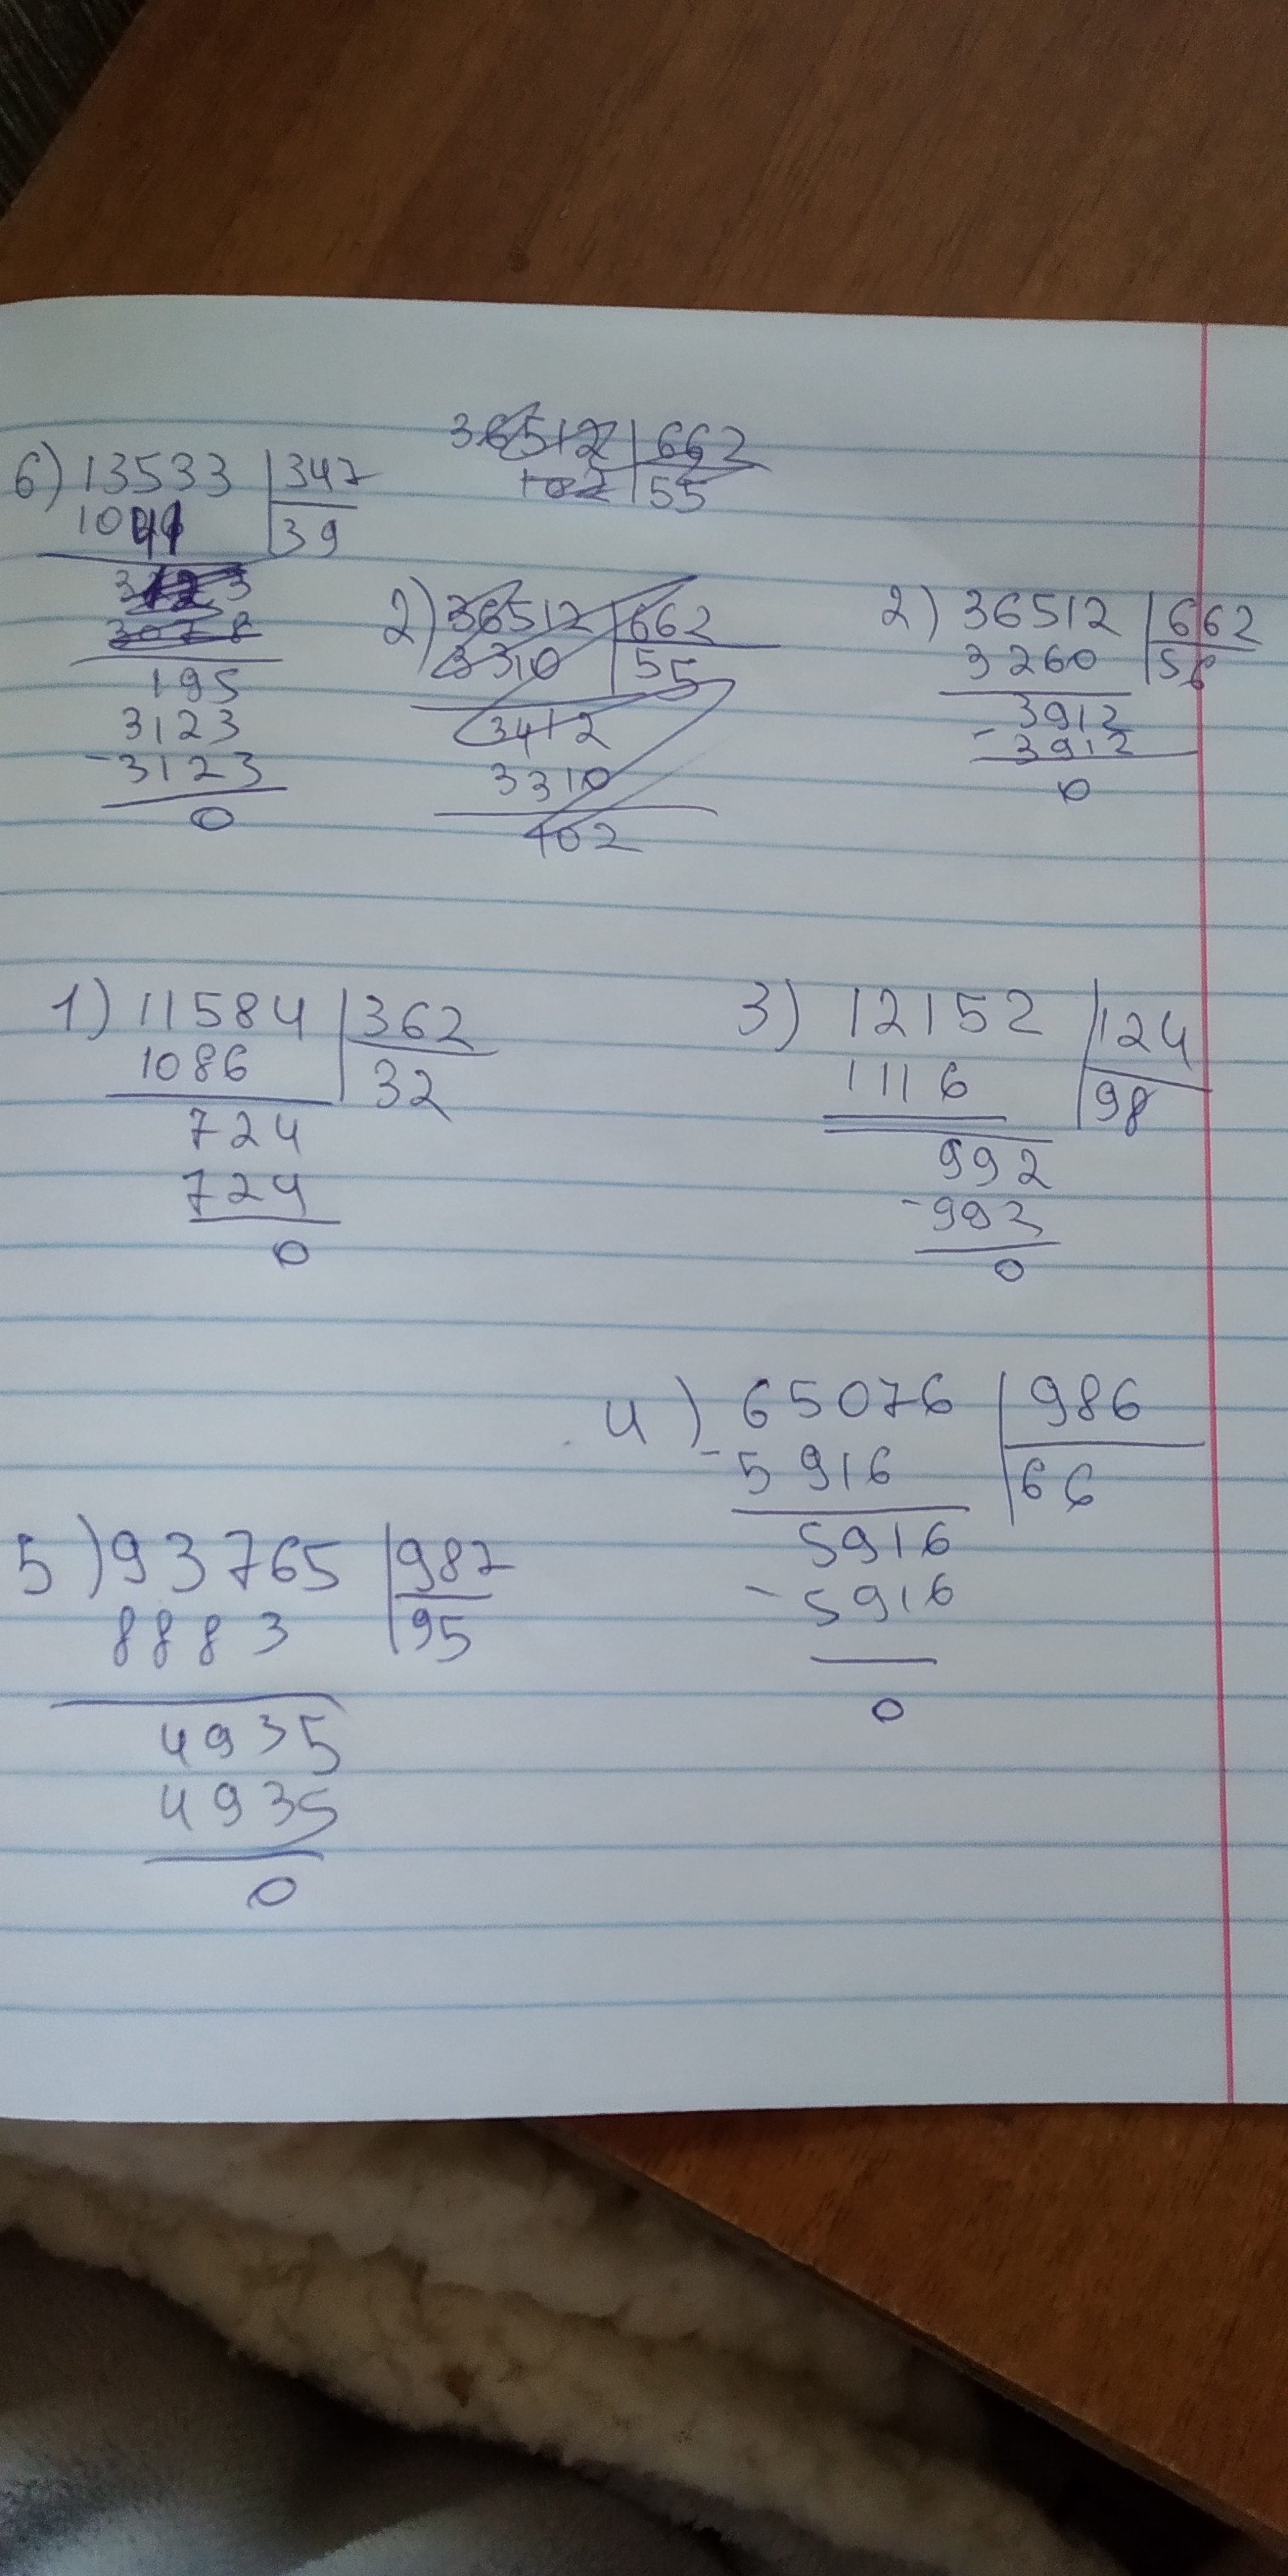 36512 662
102 55
6) 13533 347
1041 39
3123
3078
195
3123
-3123
0
2) 36512 662
3310 55
3412
3310
102
2) 36512 662
3260 56
3912
-3912
0
1) 11584 362
1086 32
724
724
0
3) 12152 124
1116 98
992
-992
0
4) 65076 986
-5916 66
5916
-5916
0
5) 93765 987
8883 95
4935
4935
0